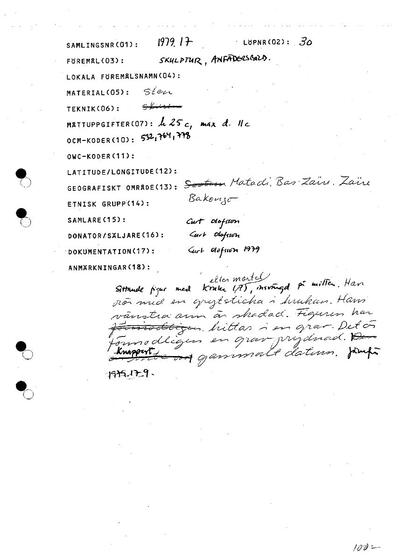 SAMLINGSNR(01): 1979.17 LÖPNR(02): 30
FÖREMÅL(03): SKULPTUR, ANFÄDERSBILD.
LOKALA FÖREMÅLSNAMN(04):
MATERIAL(05): Sten
TEKNIK(06):
MÅTTUPPGIFTER(07): h 25 c, max d. 11c
OCM-KODER(10): 532,764,778
OWC-KODER(11):
LATITUDE/LONGITUDE(12):
GEOGRAFISKT OMRÅDE(13): Matadi, Bas Zaïre. Zaïre
ETNISK GRUPP(14): Bakongo
SAMLARE(15): Curt Olofsson
DONATOR/SÄLJARE(16): Curt Olofsson
DOKUMENTATION(17): Curt Olofsson 1979
ANMÄRKNINGAR(18):
eller mortel
Sittande figur med kruka (?), insvängd på mitten. Han
rör med en grytsticka i krukan. Hans
vänstra arm är skadad. Figuren har
förmodligen hittas i en grav. Det är
förmodligen en grav prydnad.
knappast gammalt datum. Jämför
1979.17.9.